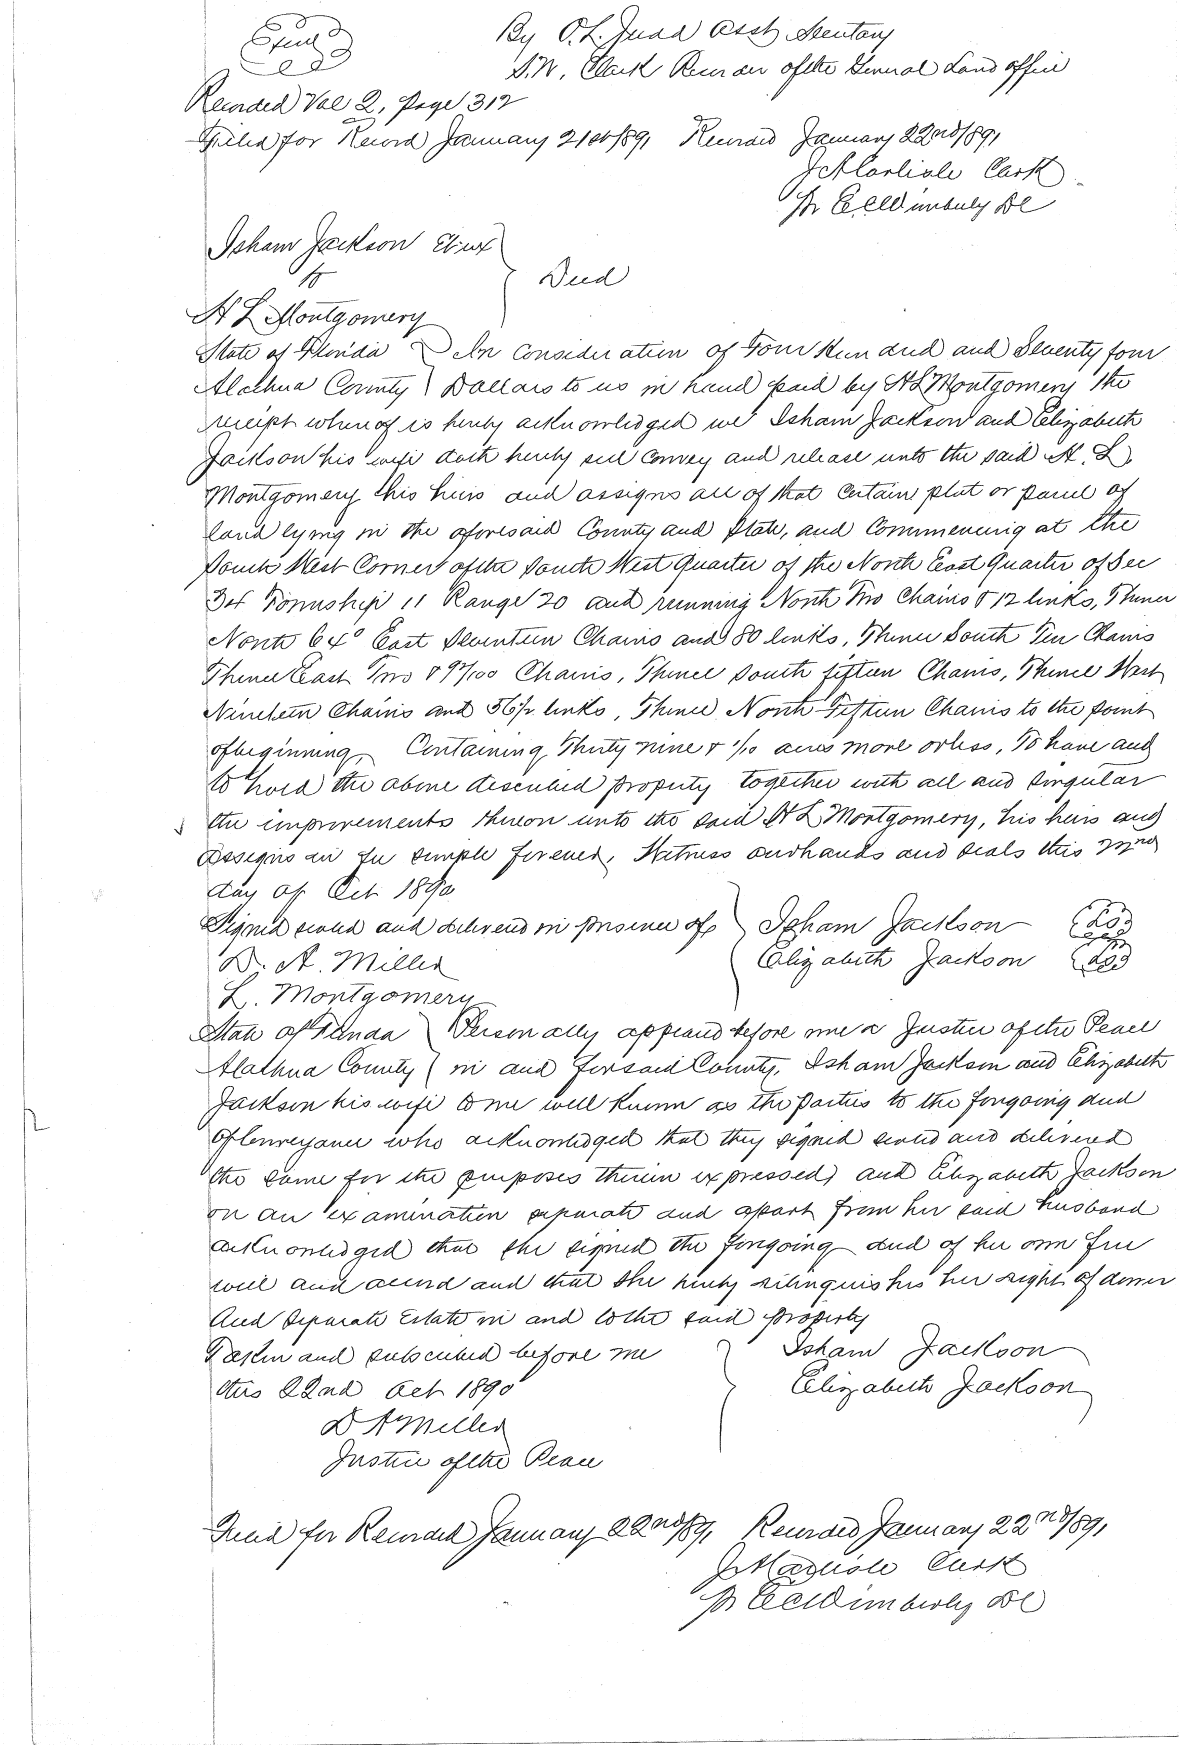 By O.L. Judd Asst Secretary
S.W. Clark Recorder of the General Land office
Recorded Vol 2, page 312
Filed for Record January 21st/891 Recorded January 22nd/891
J A Carlisle Clerk
pr E C Wimberly DC
Isham Jackson Et ux
to
Deed
H L Montgomery
State of Florida In Consideration of Four Hundred and Seventy four
Alachua County Dollars to us in hand paid by H L Montgomery the
receipt whereof is hereby acknowledged we Isham Jackson and Elizabeth
Jackson his wife doth hereby sell Convey and release unto the said H. L.
Montgomery his heirs and assigns all of that Certain plat or parcel of
land lying in the aforesaid County and State, and Commencing at the
South West Corner of the South West Quarter of the North East Quarter of Sec
34 Township 11 Range 20 and running North Two Chains & 12 links, Thence
North 64° East Seventeen Chains and 80 links, Thence South Ten Chains
Thence East Two & 97/100 Chains, Thence South fifteen Chains, Thence West
Nineteen Chains and 56½ links, Thence North Fifteen Chains to the point
of beginning, Containing Thirty nine & 1/10 acres more or less, To have and
to hold the above described property together with all and singular
the improvements thereon unto the said H L Montgomery, his heirs and
assigns in fee simple forever, Witness our hands and seals this 22nd
day of Oct 1890
Signed sealed and delivered in presence of Isham Jackson
D. A. Miller Elizabeth Jackson
L. Montgomery
State of Florida Personally appeared before me a Justice of the Peace
Alachua County in and for said County, Isham Jackson and Elizabeth
Jackson his wife to me well known as the parties to the forgoing deed
of Conveyance who acknowledged that they signed sealed and delivered
the same for the purposes therein expressed, and Elizabeth Jackson
on an examination separate and apart from her said husband
acknowledged that she signed the forgoing deed of her own free
will and accord and that she hereby relinquishes her right of dower
and separate Estate in and to the said property
Taken and subscribed before me Isham Jackson
this 22nd Oct 1890 Elizabeth Jackson
D A Miller
Justice of the Peace
Filed for Recorded January 22nd/891 Recorded January 22nd/891
J A Carlisle Clerk
pr E C Wimberly DC